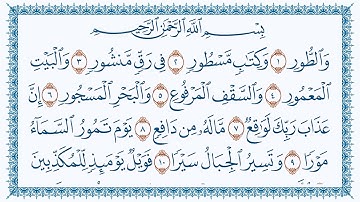 بِسْمِ اللَّهِ الرَّحْمَٰنِ الرَّحِيمِ
وَالطُّورِ ١ وَكِتَابٍ مَسْطُورٍ ٢ فِي رَقٍّ مَنْشُورٍ ٣ وَالْبَيْتِ
الْمَعْمُورِ ٤ وَالسَّقْفِ الْمَرْفُوعِ ٥ وَالْبَحْرِ الْمَسْجُورِ ٦ إِنَّ
عَذَابَ رَبِّكَ لَوَاقِعٌ ٧ مَالَهُ مِنْ دَافِعٍ ٨ يَوْمَ تَمُورُ السَّمَاءُ
مَوْرًا ٩ وَتَسِيرُ الْجِبَالُ سَيْرًا ١٠ فَوَيْلٌ يَوْمَئِذٍ لِلْمُكَذِّبِينَ